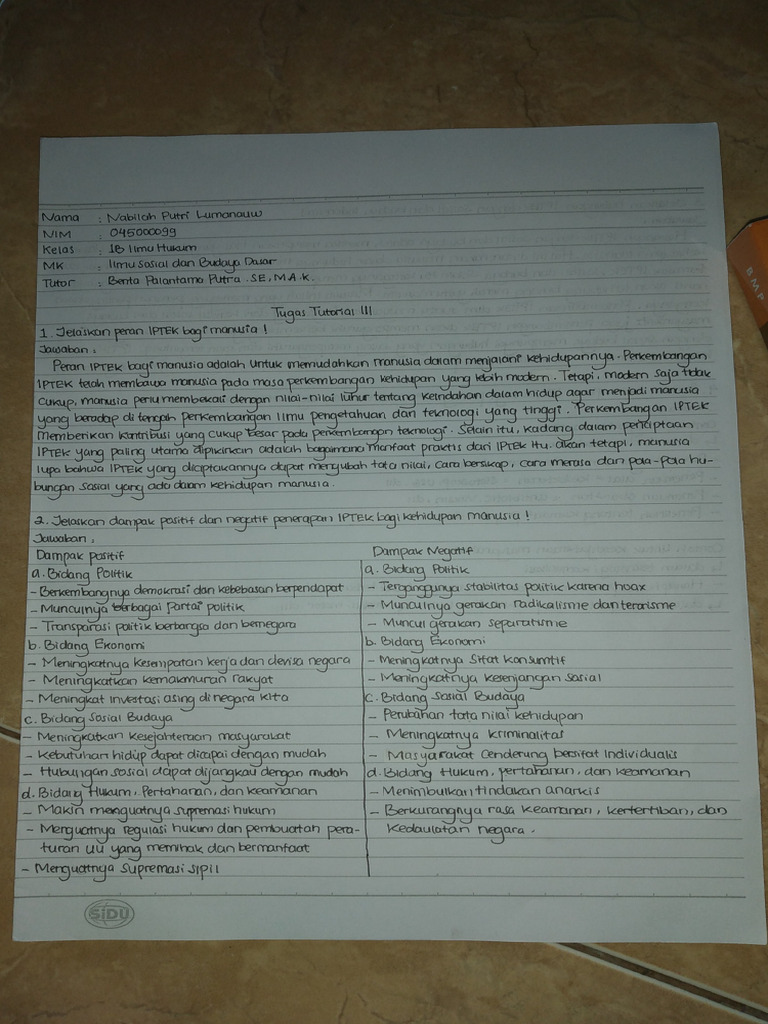 Nama : Nabilah Putri Lumanauw
NIM : 045000099
Kelas : 1B Ilmu Hukum
MK : Ilmu Sosial dan Budaya Dasar
Tutor : Benta Palantama Putra .SE,M.A.K.
Tugas Tutorial III
1. Jelaskan peran IPTEK bagi manusia !
Jawaban :
Peran IPTEK bagi manusia adalah untuk memudahkan manusia dalam menjalani kehidupannya. Perkembangan
IPTEK telah membawa manusia pada masa perkembangan kehidupan yang lebih modern. Tetapi, modern saja tidak
cukup, manusia perlu membekali dengan nilai-nilai luhur tentang keindahan dalam hidup agar menjadi manusia
yang beradap di tengah perkembangan ilmu pengetahuan dan teknologi yang tinggi. Perkembangan IPTEK
memberikan kontribusi yang cukup besar pada perkembangan teknologi. Selain itu, kadang dalam penciptaan
IPTEK yang paling utama dipikirkan adalah bagaimana manfaat praktis dari IPTEK itu. akan tetapi, manusia
lupa bahwa IPTEK yang diciptakannya dapat mengubah tata nilai, cara bersikap, cara merasa dan pola-pola hu-
bungan sosial yang ada dalam kehidupan manusia.
2. Jelaskan dampak positif dan negatif penerapan IPTEK bagi kehidupan manusia !
Jawaban :
Dampak positif
a. Bidang Politik
- Berkembangnya demokrasi dan kebebasan berpendapat
- Munculnya berbagai Partai politik
- Transparasi politik berbangsa dan bernegara
b. Bidang Ekonomi
- Meningkatnya kesempatan kerja dan devisa negara
- Meningkatkan kemakmuran rakyat
- Meningkat investasi asing di negara kita
c. Bidang Sosial Budaya
- Meningkatkan kesejahteraan masyarakat
- Kebutuhan hidup dapat dicapai dengan mudah
- Hubungan sosial dapat dijangkau dengan mudah
d. Bidang Hukum, Pertahanan, dan keamanan
- Makin menguatnya supremasi hukum
- Menguatnya regulasi hukum dan pembuatan pera-
turan UU yang memihak dan bermanfaat
- Menguatnya supremasi sipil
Dampak Negatif
a. Bidang Politik
- Terganggunya stabilitas politik karena hoax
- Munculnya gerakan radikalisme dan terorisme
- Muncul gerakan separatisme
b. Bidang Ekonomi
- Meningkatnya sifat konsumtif
- Meningkatnya kesenjangan sosial
c. Bidang Sosial Budaya
- Perubahan tata nilai kehidupan
- Meningkatnya kriminalitas
- Masyarakat cenderung bersifat individualis
d. Bidang Hukum, pertahanan, dan keamanan
- Menimbulkan tindakan anarkis
- Berkurangnya rasa keamanan, kertertiban, dan
kedaulatan negara.
SIDU
BMP